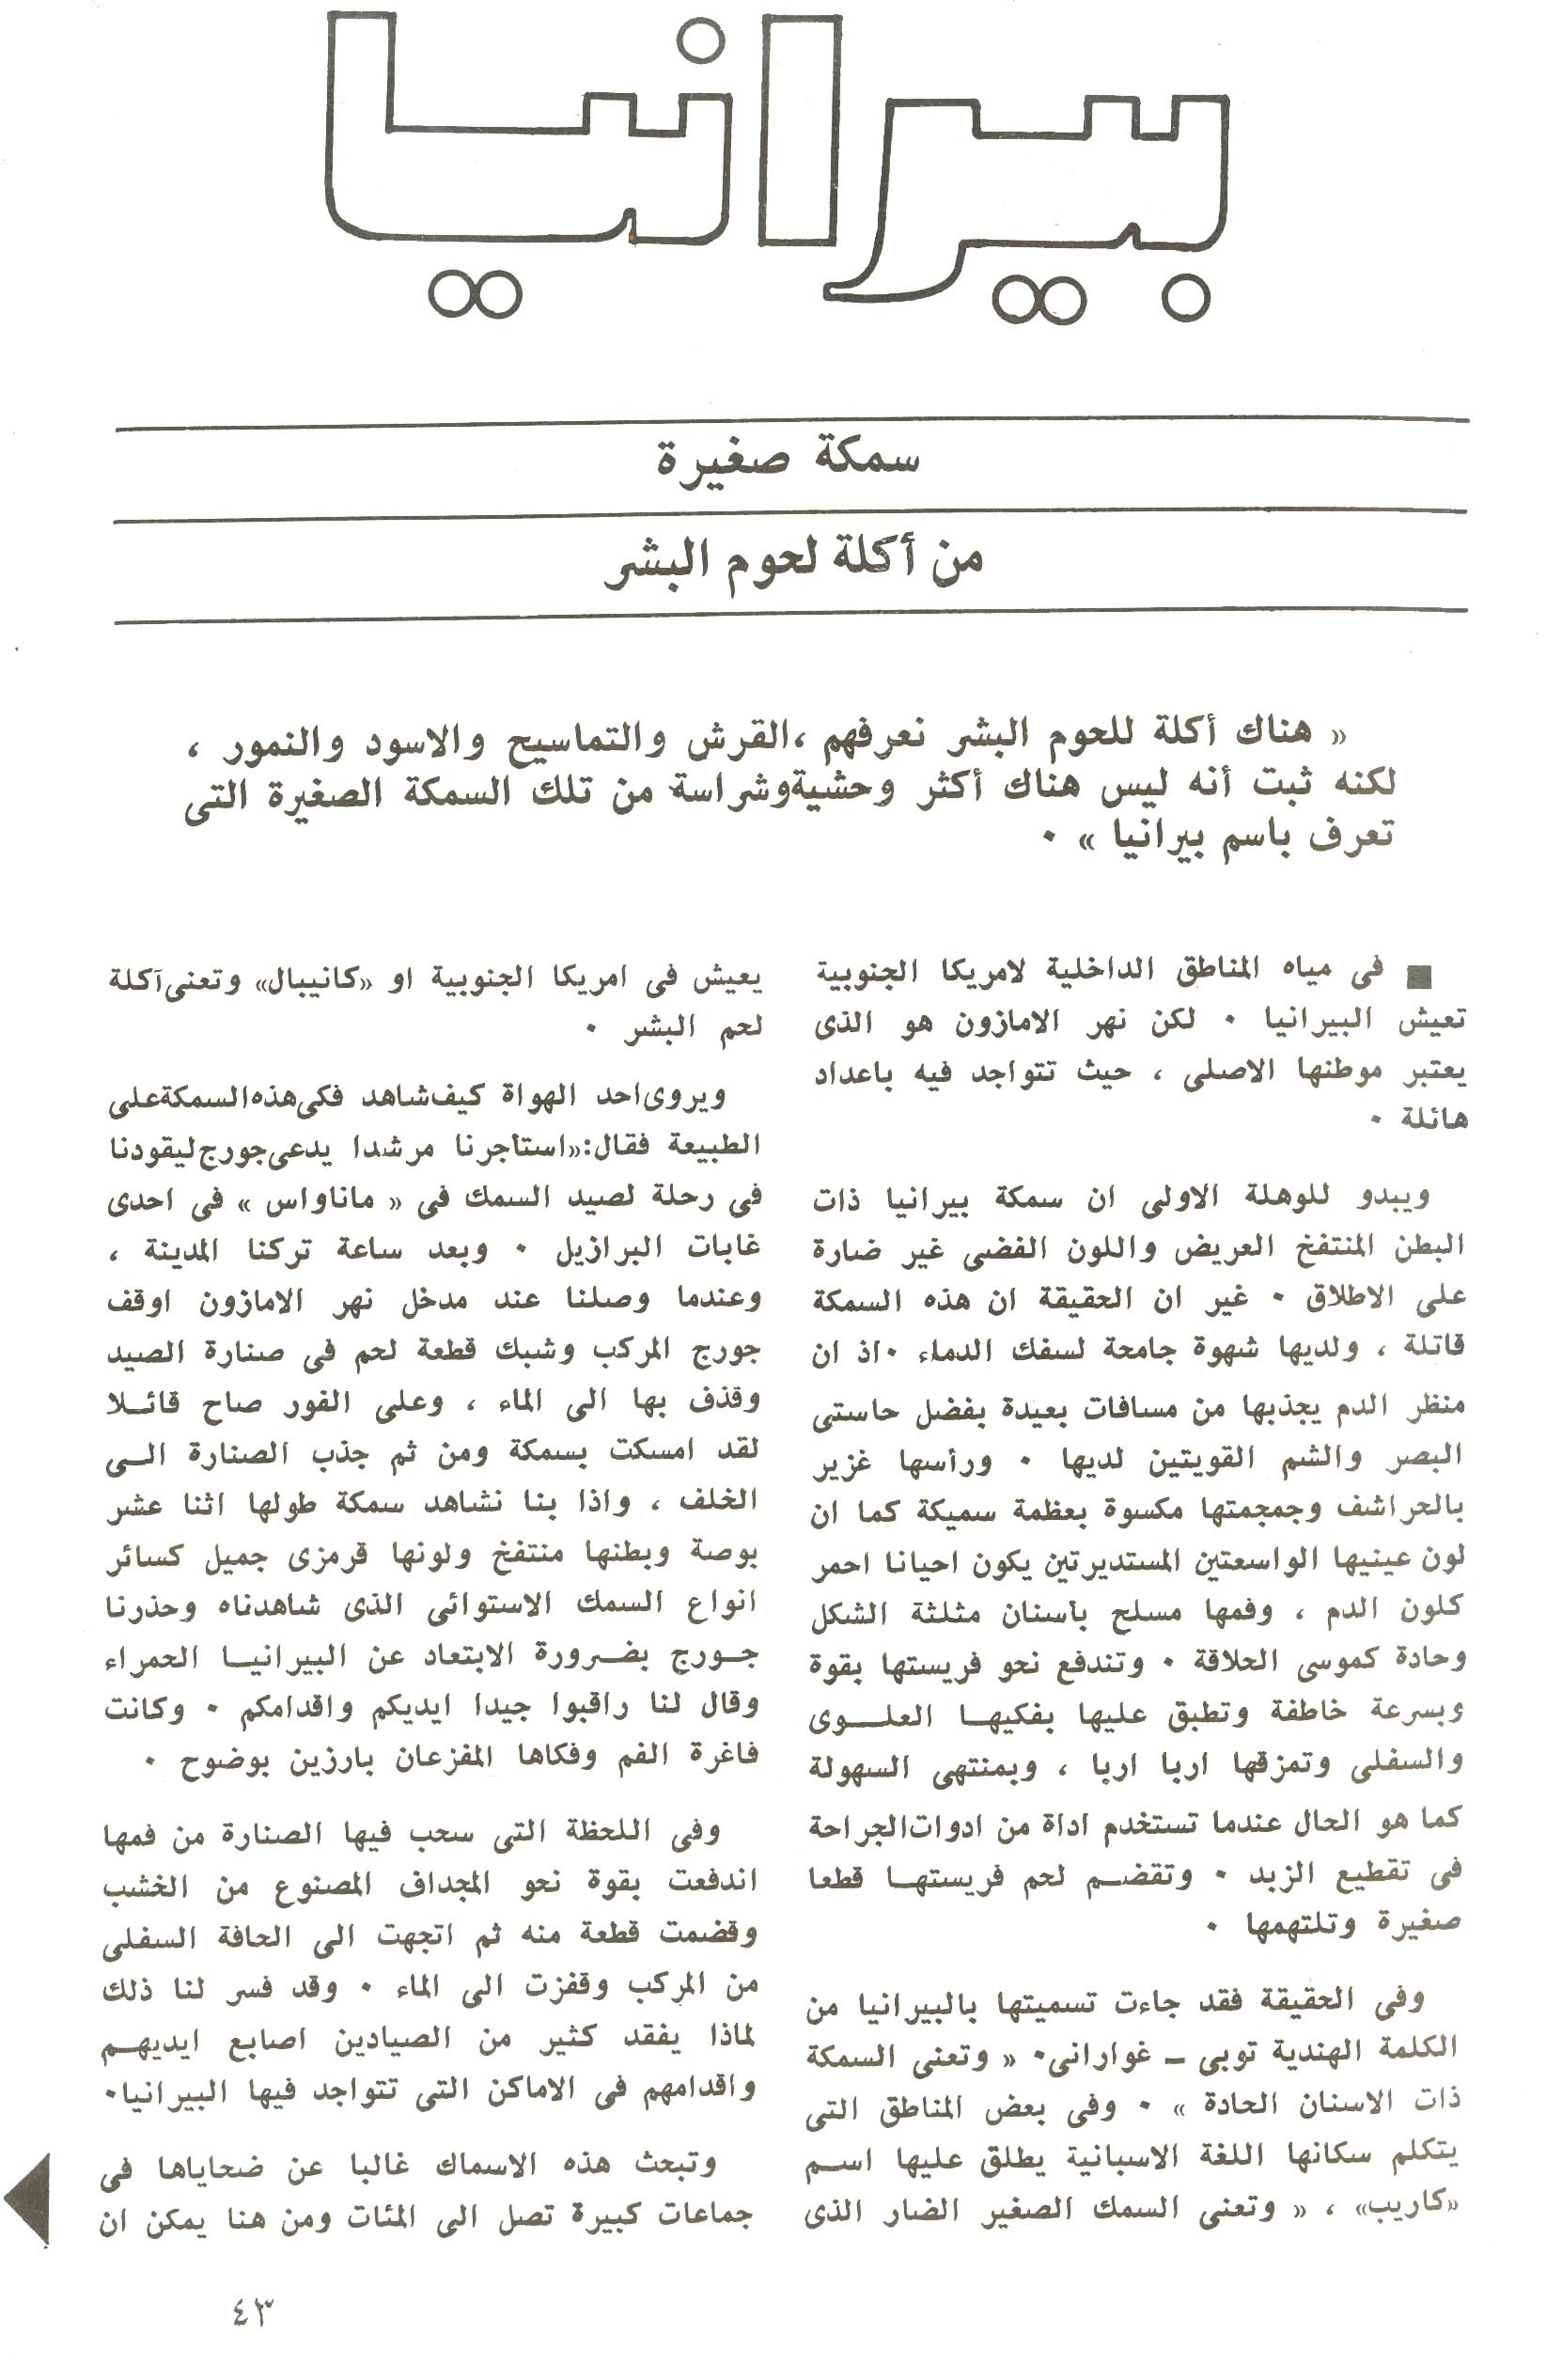 بيرانيا
سمكة صغيرة
من أكلة لحوم البشر
« هناك أكلة للحوم البشر نعرفهم ،القرش والتماسيح والاسود والنمور ،
لكنه ثبت أنه ليس هناك أكثر وحشيةوشراسة من تلك السمكة الصغيرة التى
تعرف باسم بيرانيا » ٠
■ فى مياه المناطق الداخلية لامريكا الجنوبية
تعيش البيرانيا ٠ لكن نهر الامازون هو الذى
يعتبر موطنها الاصلى ، حيث تتواجد فيه باعداد
هائلة ٠
ويبدو للوهلة الاولى ان سمكة بيرانيا ذات
البطن المنتفخ العريض واللون الفضى غير ضارة
على الاطلاق ٠ غير ان الحقيقة ان هذه السمكة
قاتلة ، ولديها شهوة جامحة لسفك الدماء ٠اذ ان
منظر الدم يجذبها من مسافات بعيدة بفضل حاستى
البصر والشم القويتين لديها ٠ ورأسها غزير
بالحراشف وجمجمتها مكسوة بعظمة سميكة كما ان
لون عينيها الواسعتين المستديرتين يكون احيانا احمر
كلون الدم ، وفمها مسلح بأسنان مثلثة الشكل
وحادة كموسى الحلاقة ٠ وتندفع نحو فريستها بقوة
وبسرعة خاطفة وتطبق عليها بفكيهـا العلـوى
والسفلى وتمزقها اربا اربا ، وبمنتهى السهولة
كما هو الحال عندما تستخدم اداة من ادوات الجراحة
فى تقطيع الزبد ٠ وتقضـم لحم فريستهـا قطعا
صغيرة وتلتهمها ٠
وفى الحقيقة فقد جاءت تسميتها بالبيرانيا من
الكلمة الهندية توبى ــ غوارانى٠ « وتعنى السمكة
ذات الاسنان الحادة » ٠ وفى بعض المناطق التى
يتكلم سكانها اللغة الاسبانية يطلق عليها اسـم
«كاريب» ، « وتعنى السمك الصغير الضار الذى
يعيش فى امريكا الجنوبية او «كانيبال» وتعنى آكلة
لحم البشر ٠
ويروى احد الهواة كيف شاهد فكى هذه السمكة على
الطبيعة فقال:«استأجرنا مرشدا يدعى جورج ليقودنا
فى رحلة لصيد السمك فى « ماناواس » فى احدى
غابات البرازيل ٠ وبعد ساعة تركنا المدينة ،
وعندما وصلنا عند مدخل نهر الامازون اوقف
جورج المركب وشبك قطعة لحم فى صنارة الصيد
وقذف بها الى الماء ، وعلى الفور صاح قائـلا
لقد امسكت بسمكة ومن ثم جذب الصنارة الـى
الخلف ، واذا بنا نشاهد سمكة طولها اثنا عشر
بوصة وبطنها منتفخ ولونها قرمزى جميل كسائر
انواع السمك الاستوائى الذى شاهدناه وحذرنا
جـورج بضـرورة الابتعاد عن البيرانيـا الحمراء
وقال لنا راقبوا جيدا ايديكم واقدامكم ٠ وكانت
فاغرة الفم وفكاها المفزعان بارزين بوضوح ٠
وفى اللحظة التى سحب فيها الصنارة من فمها
اندفعت بقوة نحو المجداف المصنوع من الخشب
وقضمت قطعة منه ثم اتجهت الى الحافة السفلى
من المركب وقفزت الى الماء ٠ وقد فسر لنا ذلك
لماذا يفقد كثير من الصيادين اصابع ايديهـم
واقدامهم فى الاماكن التى تتواجد فيها البيرانيا٠
وتبحث هذه الاسماك غالبا عن ضحاياها فى
جماعات كبيرة تصل الى المئات ومن هنا يمكن ان
٤٣